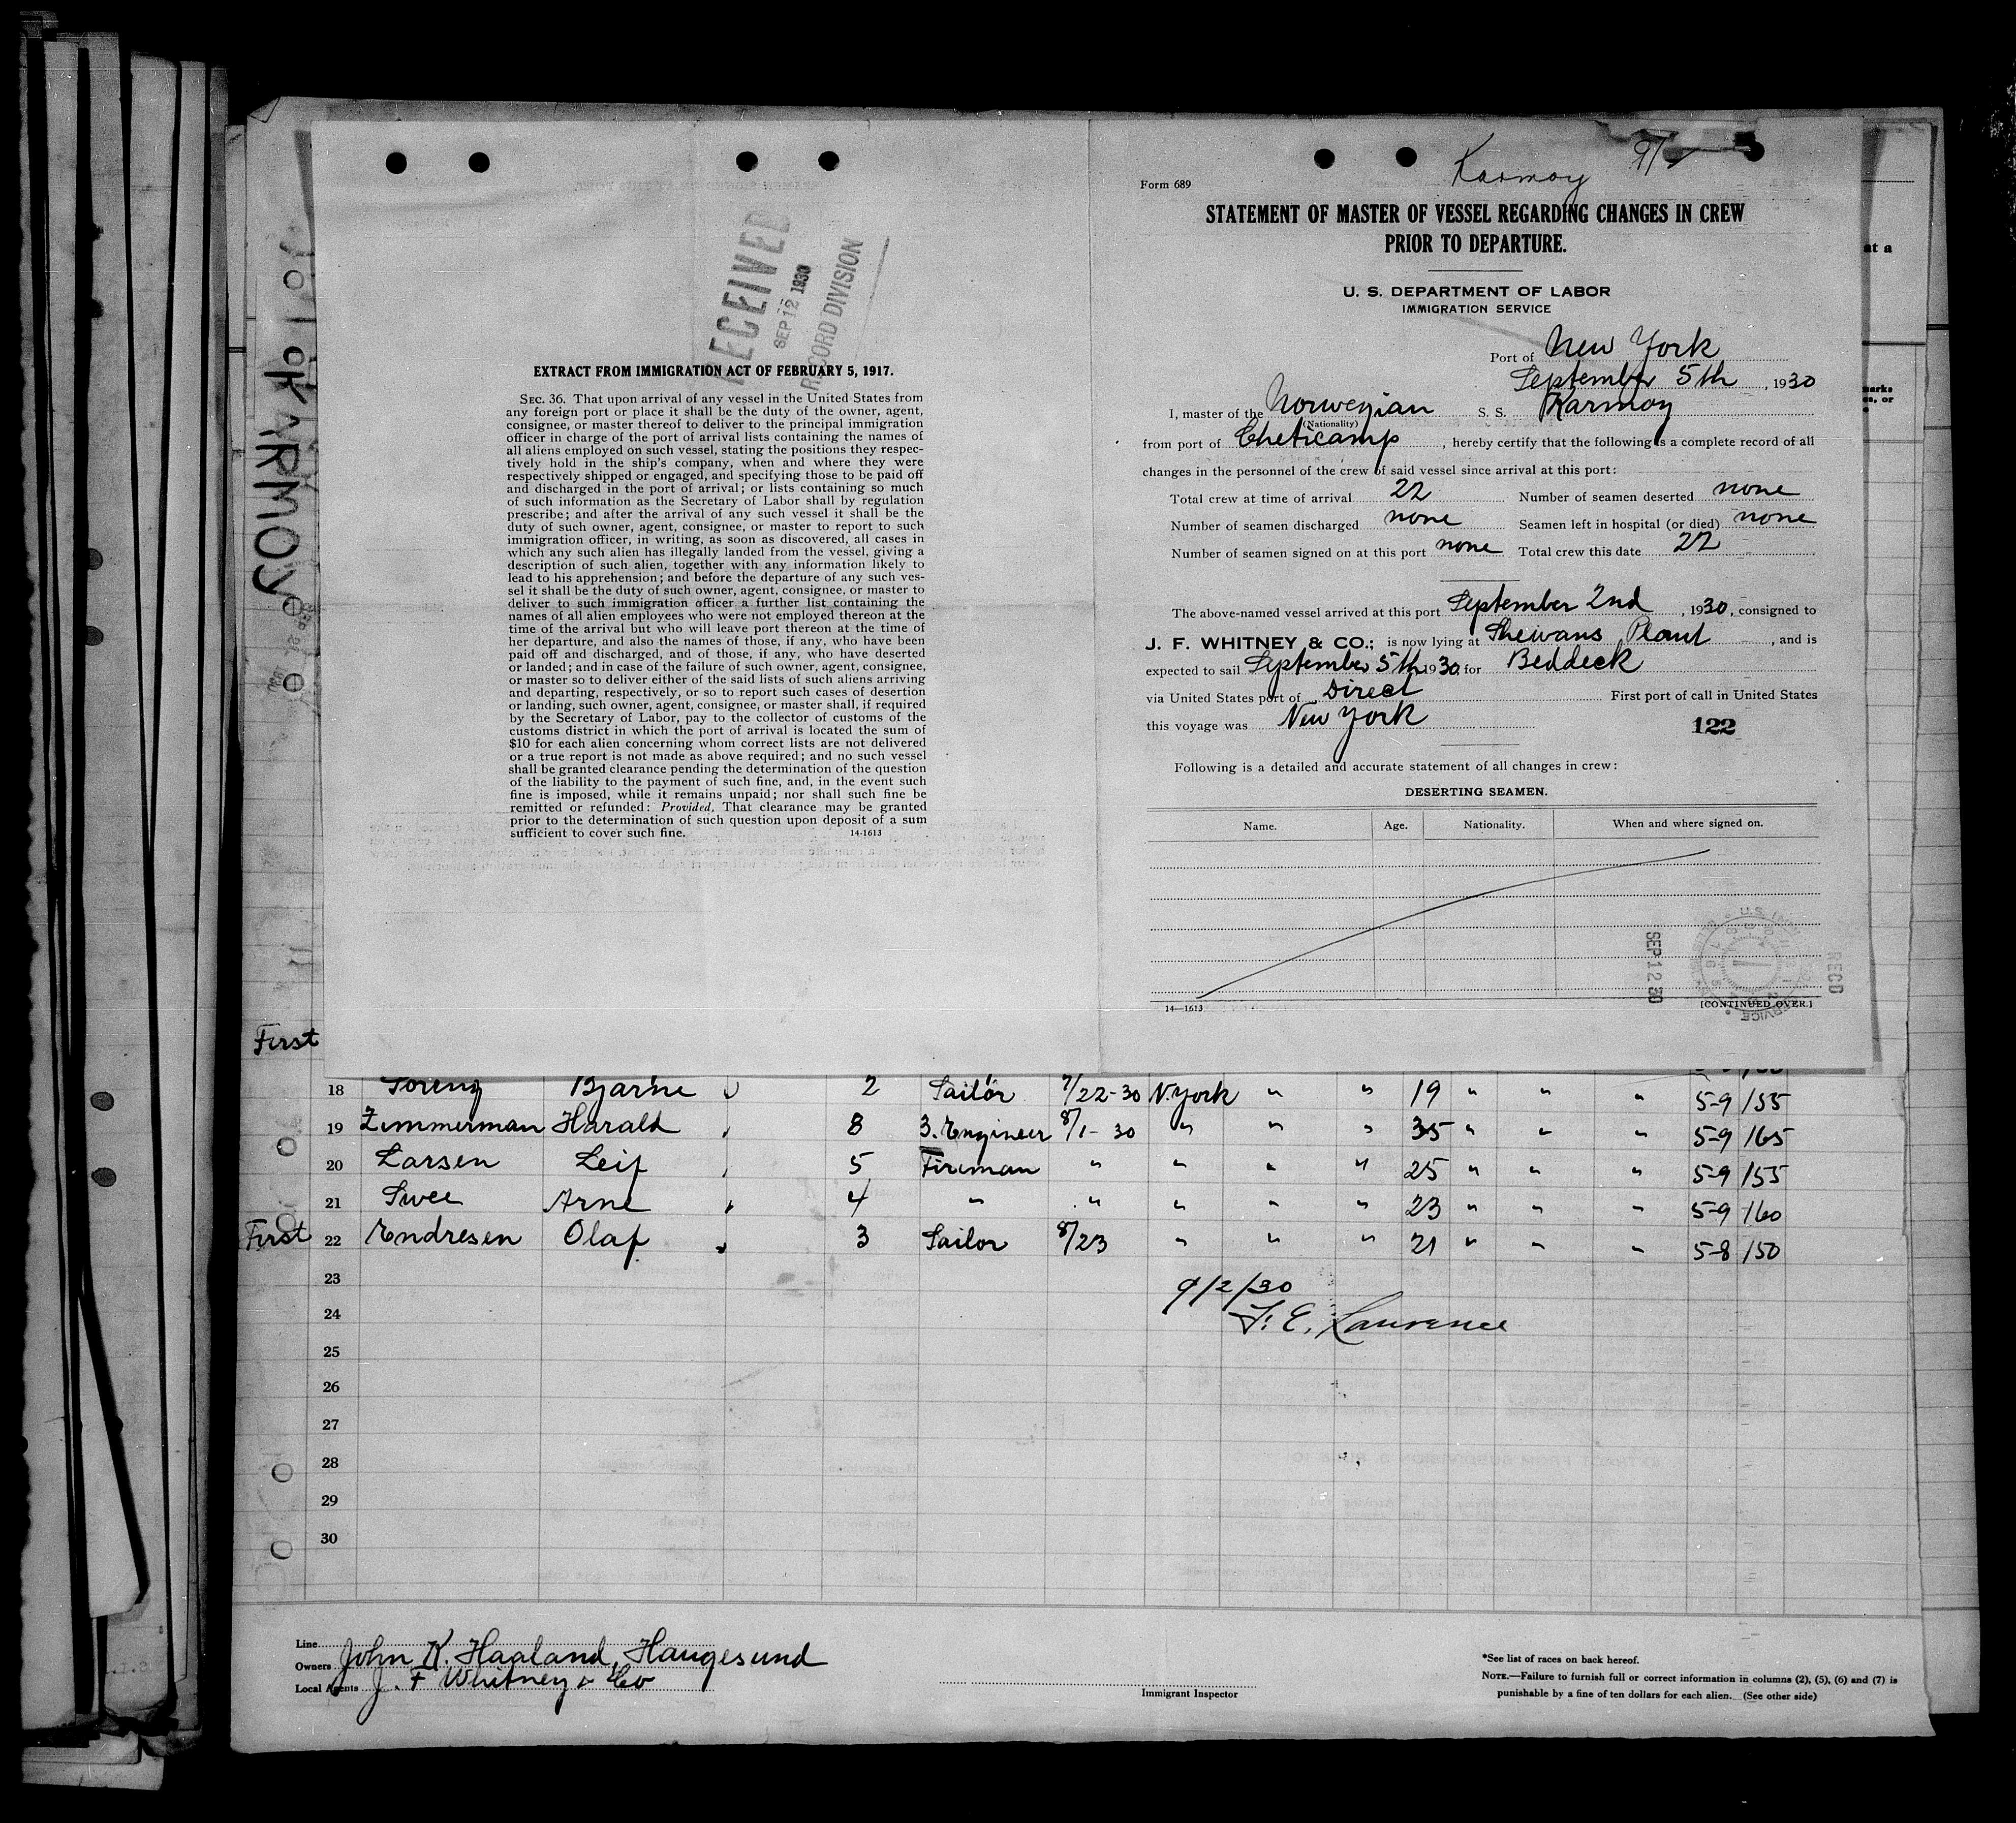 KARMOY
RECEIVED
SEP 12 1930
RECORD DIVISION
EXTRACT FROM IMMIGRATION ACT OF FEBRUARY 5, 1917.
SEC. 36. That upon arrival of any vessel in the United States from
any foreign port or place it shall be the duty of the owner, agent,
consignee, or master thereof to deliver to the principal immigration
officer in charge of the port of arrival lists containing the names of
all aliens employed on such vessel, stating the positions they respec-
tively hold in the ship's company, when and where they were
respectively shipped or engaged, and specifying those to be paid off
and discharged in the port of arrival; or lists containing so much
of such information as the Secretary of Labor shall by regulation
prescribe; and after the arrival of any such vessel it shall be the
duty of such owner, agent, consignee, or master to report to such
immigration officer, in writing, as soon as discovered, all cases in
which any such alien has illegally landed from the vessel, giving a
description of such alien, together with any information likely to
lead to his apprehension; and before the departure of any such ves-
sel it shall be the duty of such owner, agent, consignee, or master to
deliver to such immigration officer a further list containing the
names of all alien employees who were not employed thereon at the
time of the arrival but who will leave port thereon at the time of
her departure, and also the names of those, if any, who have been
paid off and discharged, and of those, if any, who have deserted
or landed; and in case of the failure of such owner, agent, consignee,
or master so to deliver either of the said lists of such aliens arriving
and departing, respectively, or so to report such cases of desertion
or landing, such owner, agent, consignee, or master shall, if required
by the Secretary of Labor, pay to the collector of customs of the
customs district in which the port of arrival is located the sum of
$10 for each alien concerning whom correct lists are not delivered
or a true report is not made as above required; and no such vessel
shall be granted clearance pending the determination of the question
of the liability to the payment of such fine, and, in the event such
fine is imposed, while it remains unpaid; nor shall such fine be
remitted or refunded: Provided, That clearance may be granted
prior to the determination of such question upon deposit of a sum
sufficient to cover such fine. 14-1613
Karmoy
Form 689
STATEMENT OF MASTER OF VESSEL REGARDING CHANGES IN CREW
PRIOR TO DEPARTURE.
U. S. DEPARTMENT OF LABOR
IMMIGRATION SERVICE
Port of New York
September 5th, 1930
I, master of the Norwegian S. S. Karmoy
(Nationality)
from port of Cheticamp, hereby certify that the following is a complete record of all
changes in the personnel of the crew of said vessel since arrival at this port:
Total crew at time of arrival 22 Number of seamen deserted none
Number of seamen discharged none Seamen left in hospital (or died) none
Number of seamen signed on at this port none Total crew this date 22
The above-named vessel arrived at this port September 2nd, 1930, consigned to
J. F. WHITNEY & CO.; is now lying at Shewans Plant, and is
expected to sail September 5th 1930, for Beddeck
via United States port of Direct First port of call in United States
this voyage was New York 122
Following is a detailed and accurate statement of all changes in crew:
DESERTING SEAMEN.
Name. Age. Nationality. When and where signed on.
SEP 12 30
RECD
14—1613 [CONTINUED OVER.]
at a
marks
es, or
First
18 Soreng Bjarne 2 Sailor 7/22-30 N.York " " 19 " " " 5-9 155
19 Zimmerman Harald 8 3. Engineer 8/1-30 " " " 35 " " " 5-9 165
20 Larsen Leif 5 Fireman " " " " 25 " " " 5-9 155
21 Swee Arne 4 " " " " " 23 " " " 5-9 160
First 22 Endresen Olaf 3 Sailor 8/23 " " " 21 " " " 5-8 150
23
9/2/30
24
F. E. Laurence
25
26
27
28
29
30
Line
Owners John K. Haaland, Haugesund
Local Agents J. F Whitney & Co
Immigrant Inspector
*See list of races on back hereof.
NOTE.—Failure to furnish full or correct information in columns (2), (5), (6) and (7) is
punishable by a fine of ten dollars for each alien. (See other side)